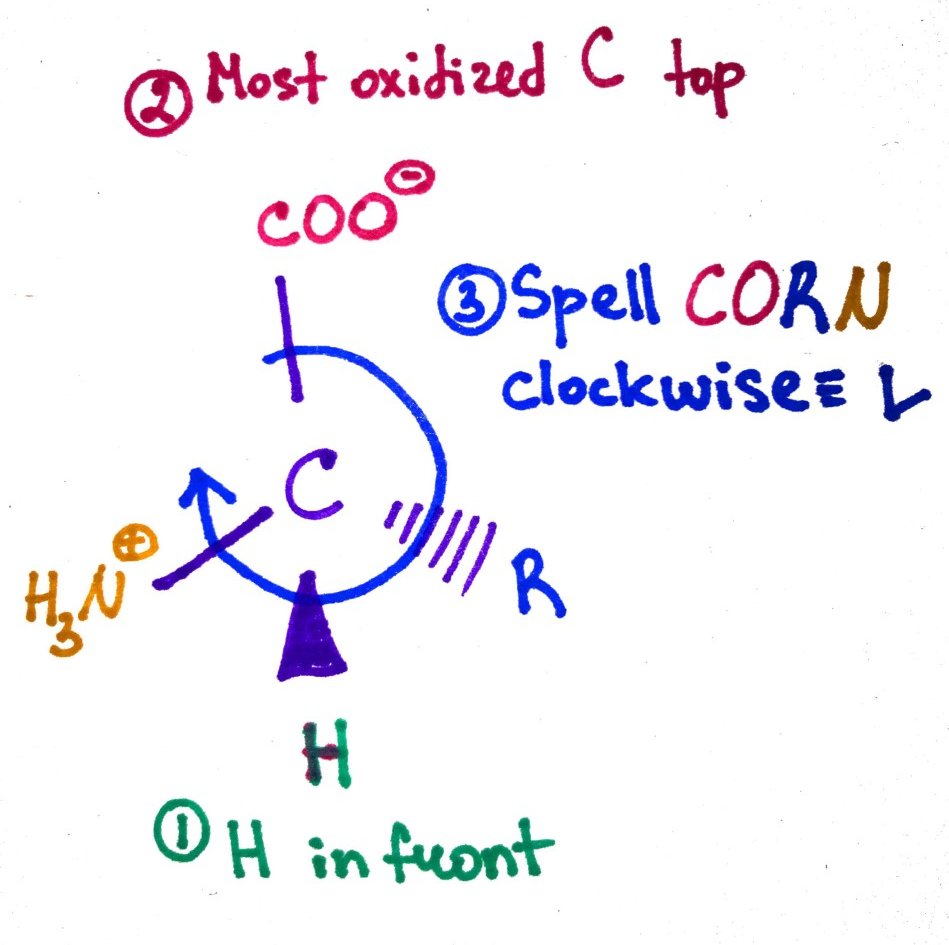 ② Most oxidized C top
COO⊖
③ Spell CORN
clockwise ≡ L
C
H₃N⊕
R
H
① H in front